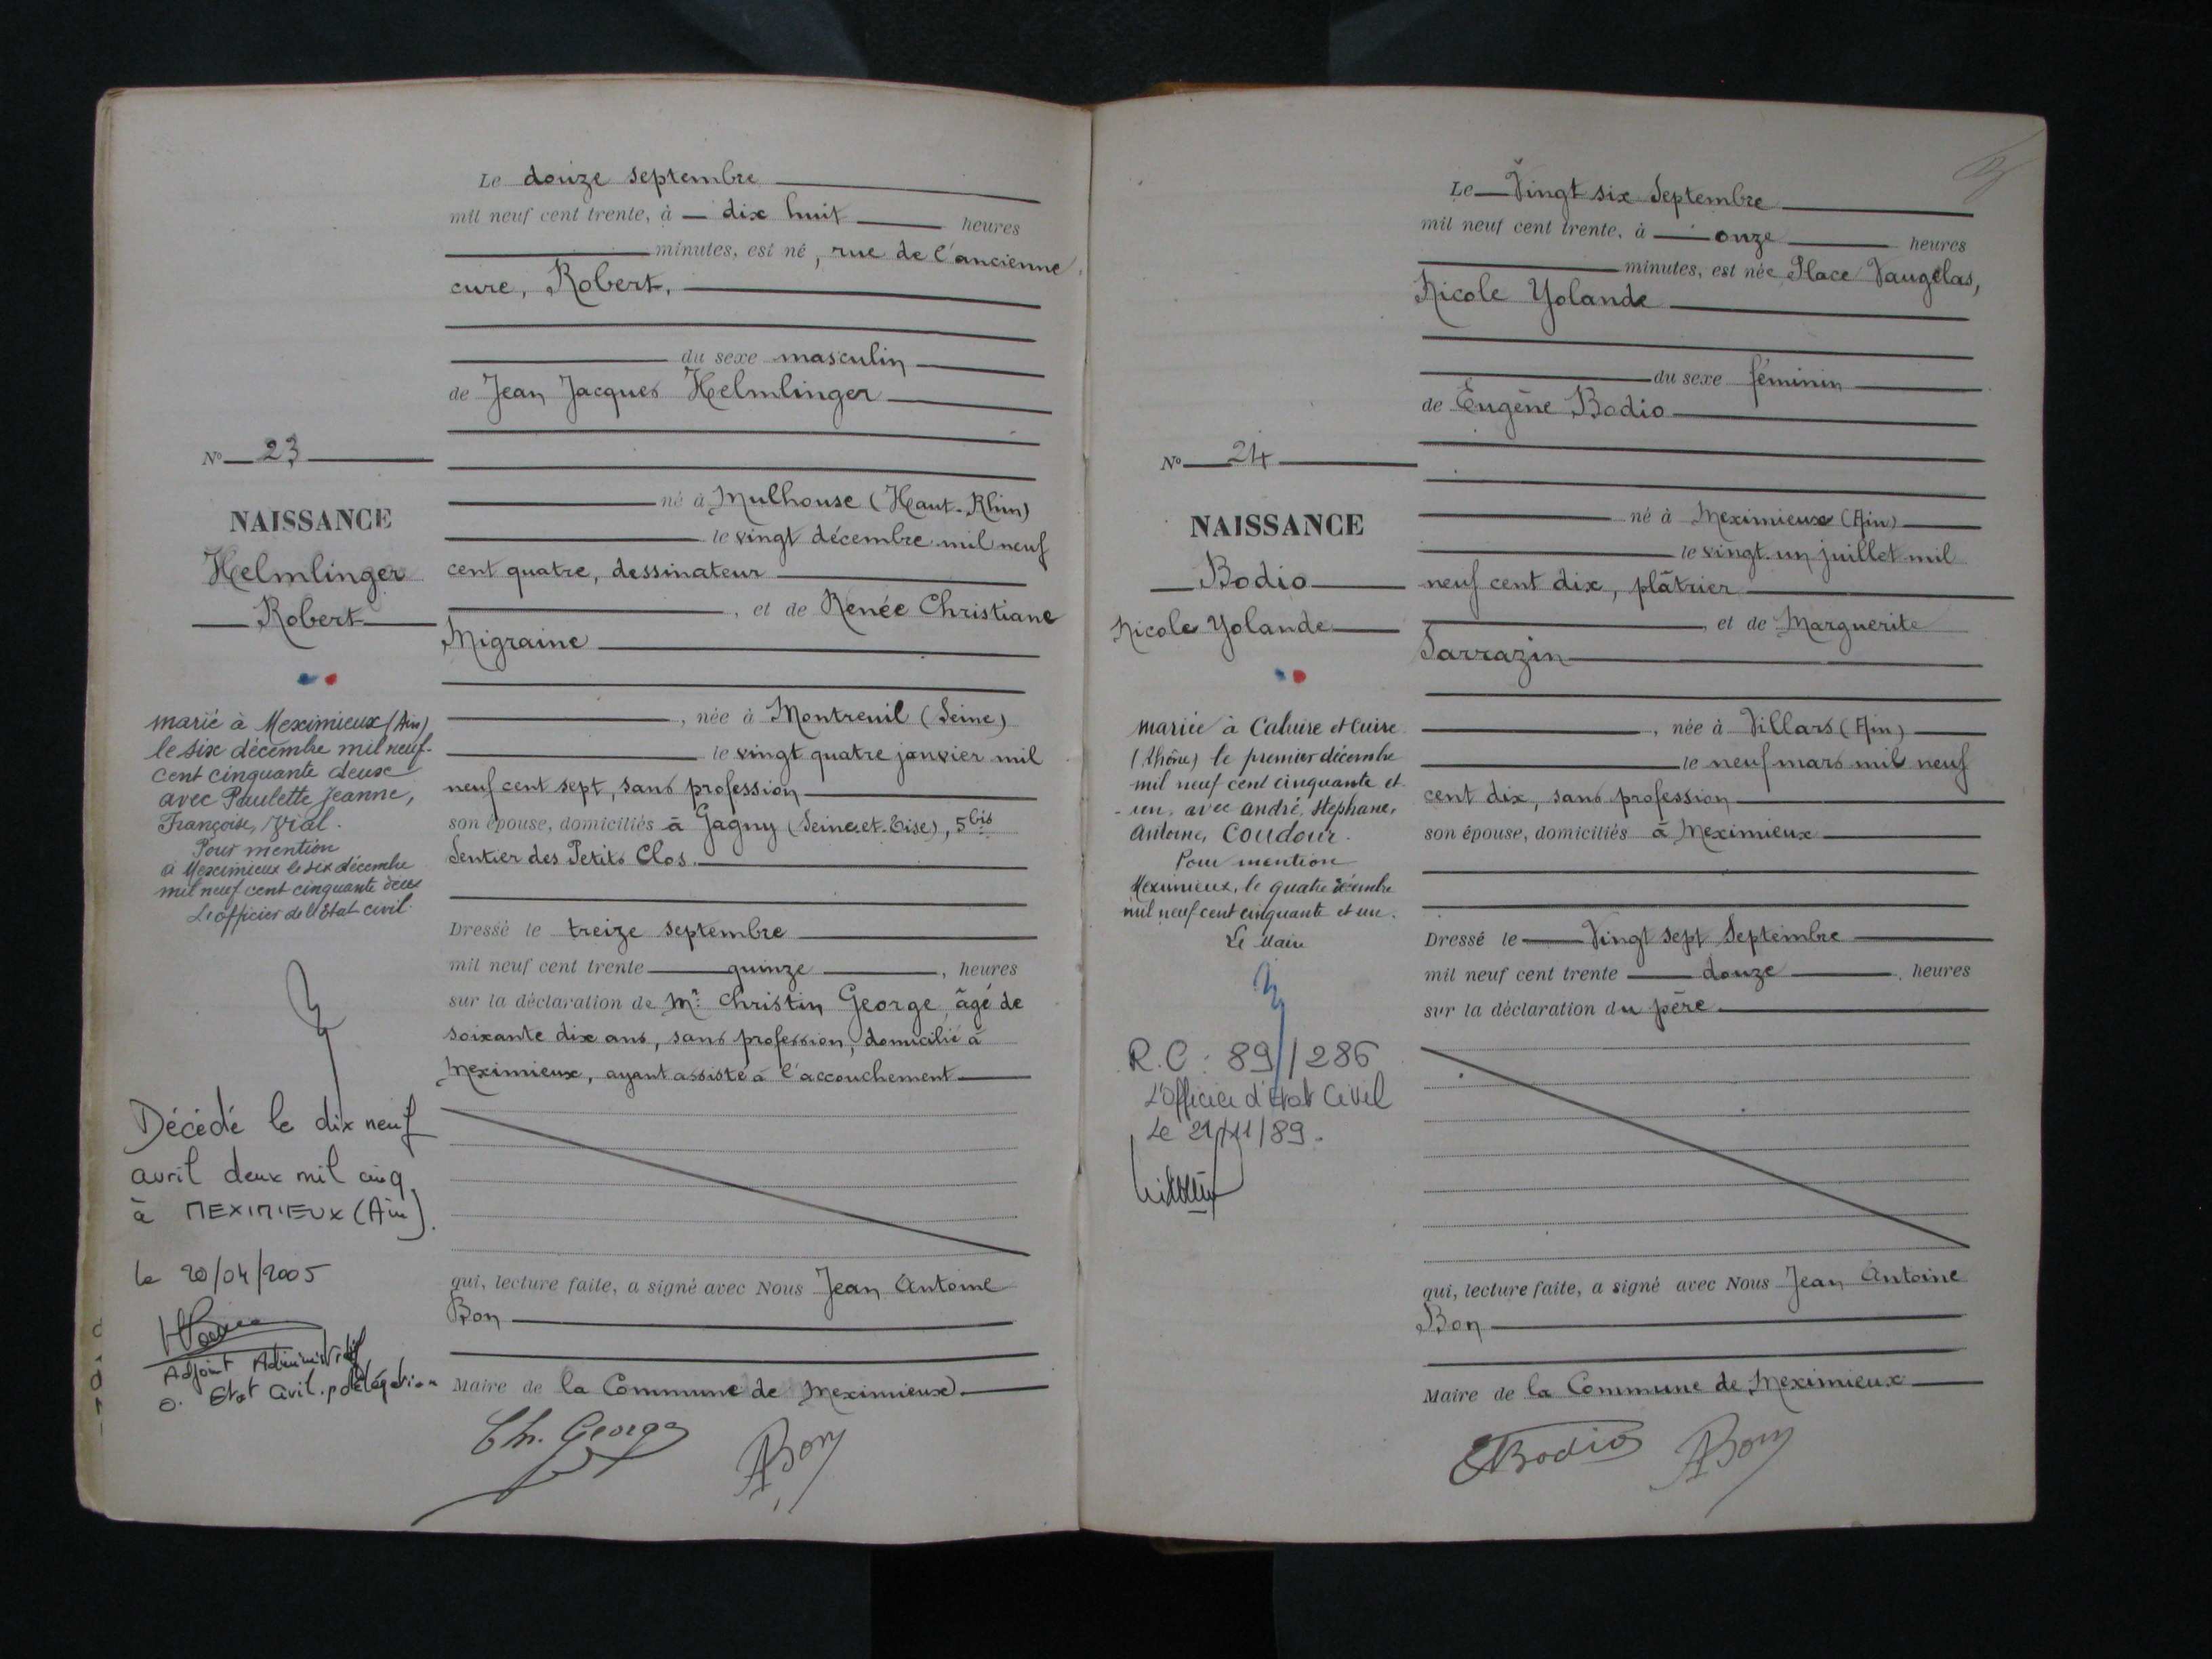 N° 23
NAISSANCE
Helmlinger
Robert
marié à Meximieux (Ain)
le six décembre mil neuf-
cent cinquante deux
avec Paulette Jeanne,
Françoise, Vial.
Pour mention
à Meximieux le six décembre
mil neuf cent cinquante deux
L'officier de l'Etat civil.
Décédé le dix neuf
avril deux mil cinq
à MEXIMIEUX (Ain).
le 20/04/2005
Adjoint Administratif
o. Etat Civil. p délégation
Le douze septembre
mil neuf cent trente, à dix huit heures
minutes, est né, rue de l'ancienne
cure, Robert,
du sexe masculin
de Jean Jacques Helmlinger
né à Mulhouse (Haut-Rhin)
le vingt décembre mil neuf
cent quatre, dessinateur
, et de Renée Christiane
Migraine
, née à Montreuil (Seine)
le vingt quatre janvier mil
neuf cent sept, sans profession
son épouse, domiciliés à Gagny (Seine-et-Oise), 5bis
Sentier des Petits Clos.
Dressé le treize septembre
mil neuf cent trente quinze, heures
sur la déclaration de Mr Christin George, âgé de
soixante dix ans, sans profession, domicilié à
Meximieux, ayant assisté à l'accouchement
qui, lecture faite, a signé avec Nous Jean Antoine
Bon
Maire de la Commune de Meximieux
Ch. George
ABon
N° 24
NAISSANCE
Bodio
Nicole Yolande
mariée à Caluire et Cuire
(Rhône) le premier décembre
mil neuf cent cinquante et
-un, avec André, Stéphane,
Antoine, Coudour.
Pour mention
Meximieux, le quatre décembre
mil neuf cent cinquante et un.
Le Maire
R.C : 89/286
L'Officier d'Etat Civil
Le 21/11/89.
Le Vingt six Septembre
mil neuf cent trente, à onze heures
minutes, est née Place Vaugelas,
Nicole Yolande
du sexe féminin
de Eugène Bodio
né à Meximieux (Ain)
le vingt-un juillet mil
neuf cent dix, plâtrier
, et de Marguerite
Sarrazin
, née à Villars (Ain)
le neuf mars mil neuf
cent dix, sans profession
son épouse, domiciliés à Meximieux
Dressé le Vingt sept Septembre
mil neuf cent trente douze, heures
sur la déclaration du père
qui, lecture faite, a signé avec Nous Jean Antoine
Bon
Maire de la Commune de Meximieux
EBodio
ABon